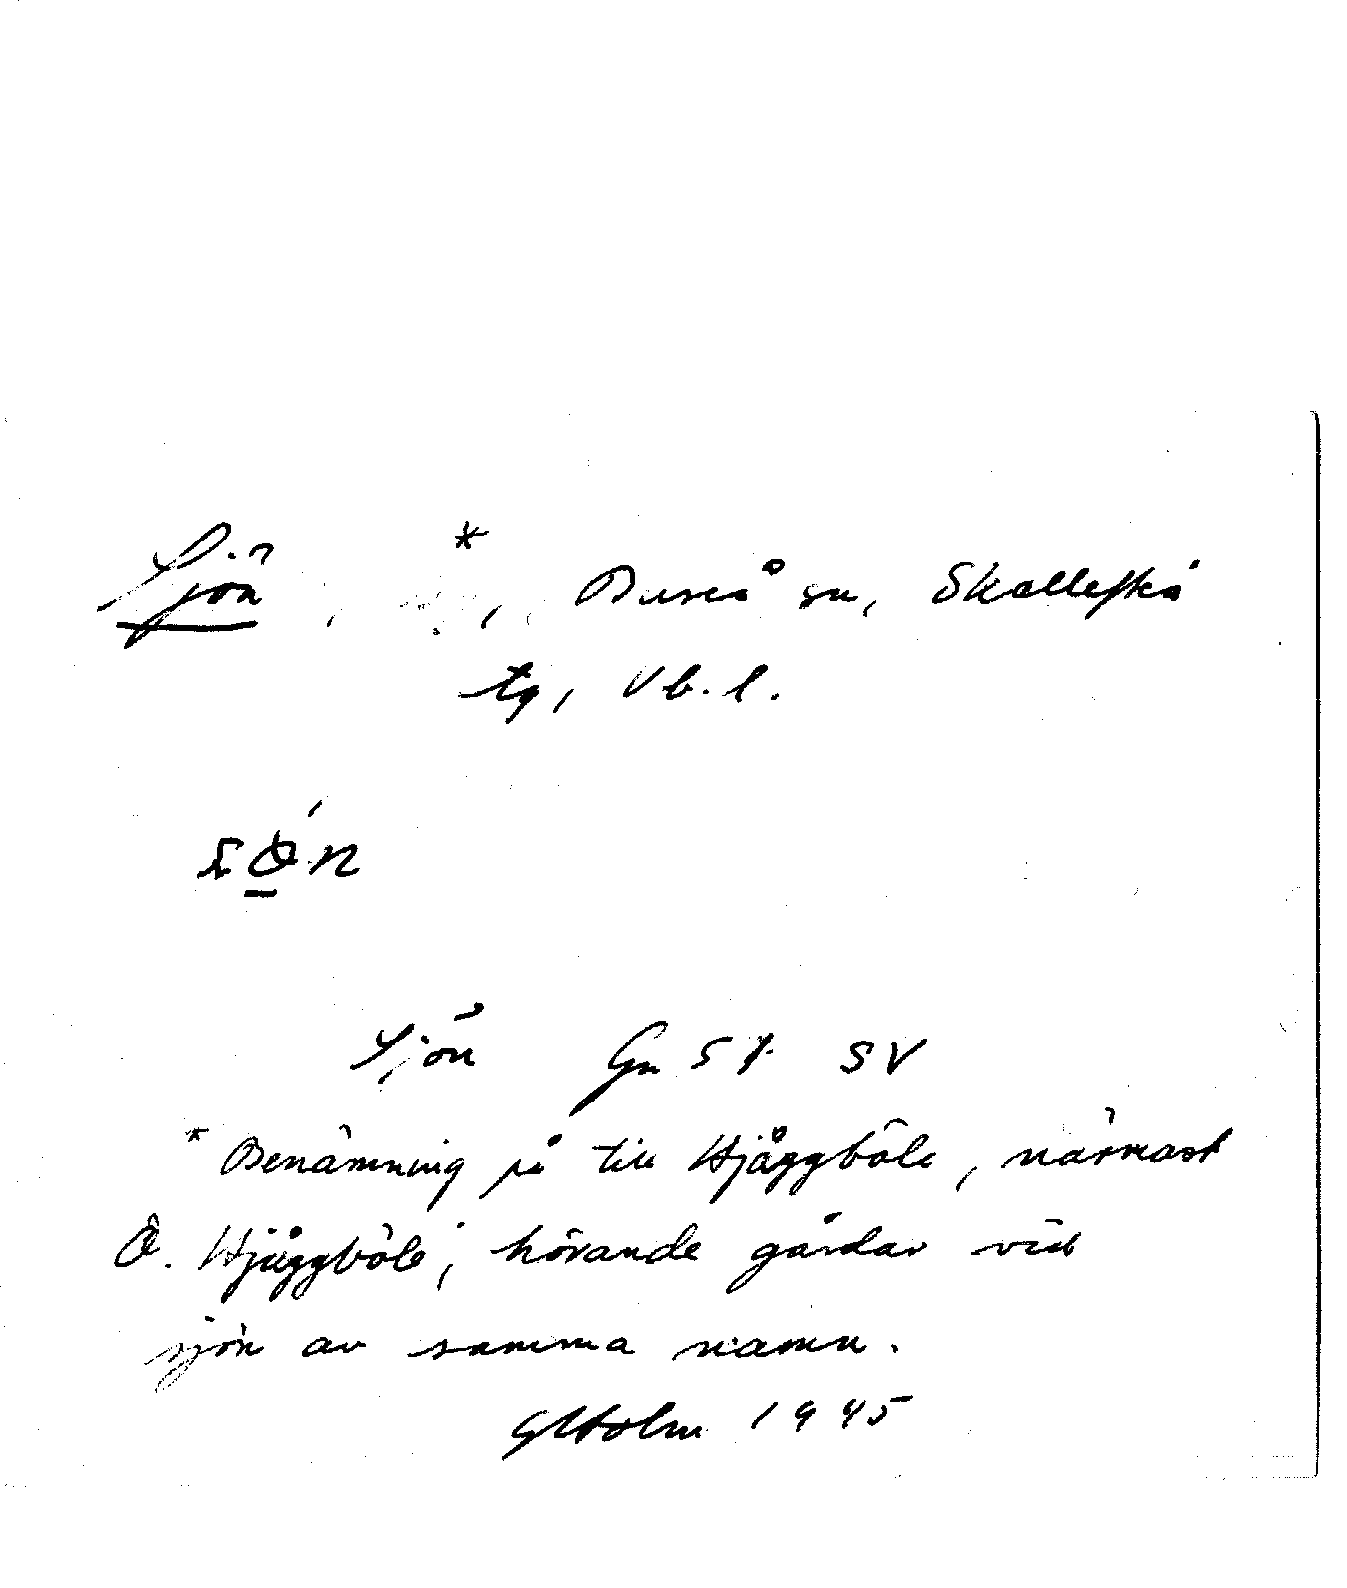 Sjön , *, Bureå sn, Skellefteå
tg, Vb. l.
Sjön Gn 57 SV
* Benämning på till Hjåggböle, närmast
Ö. Hjåggböle, hörande gårdar vid
sjön av samma namn.
GHolm 1945